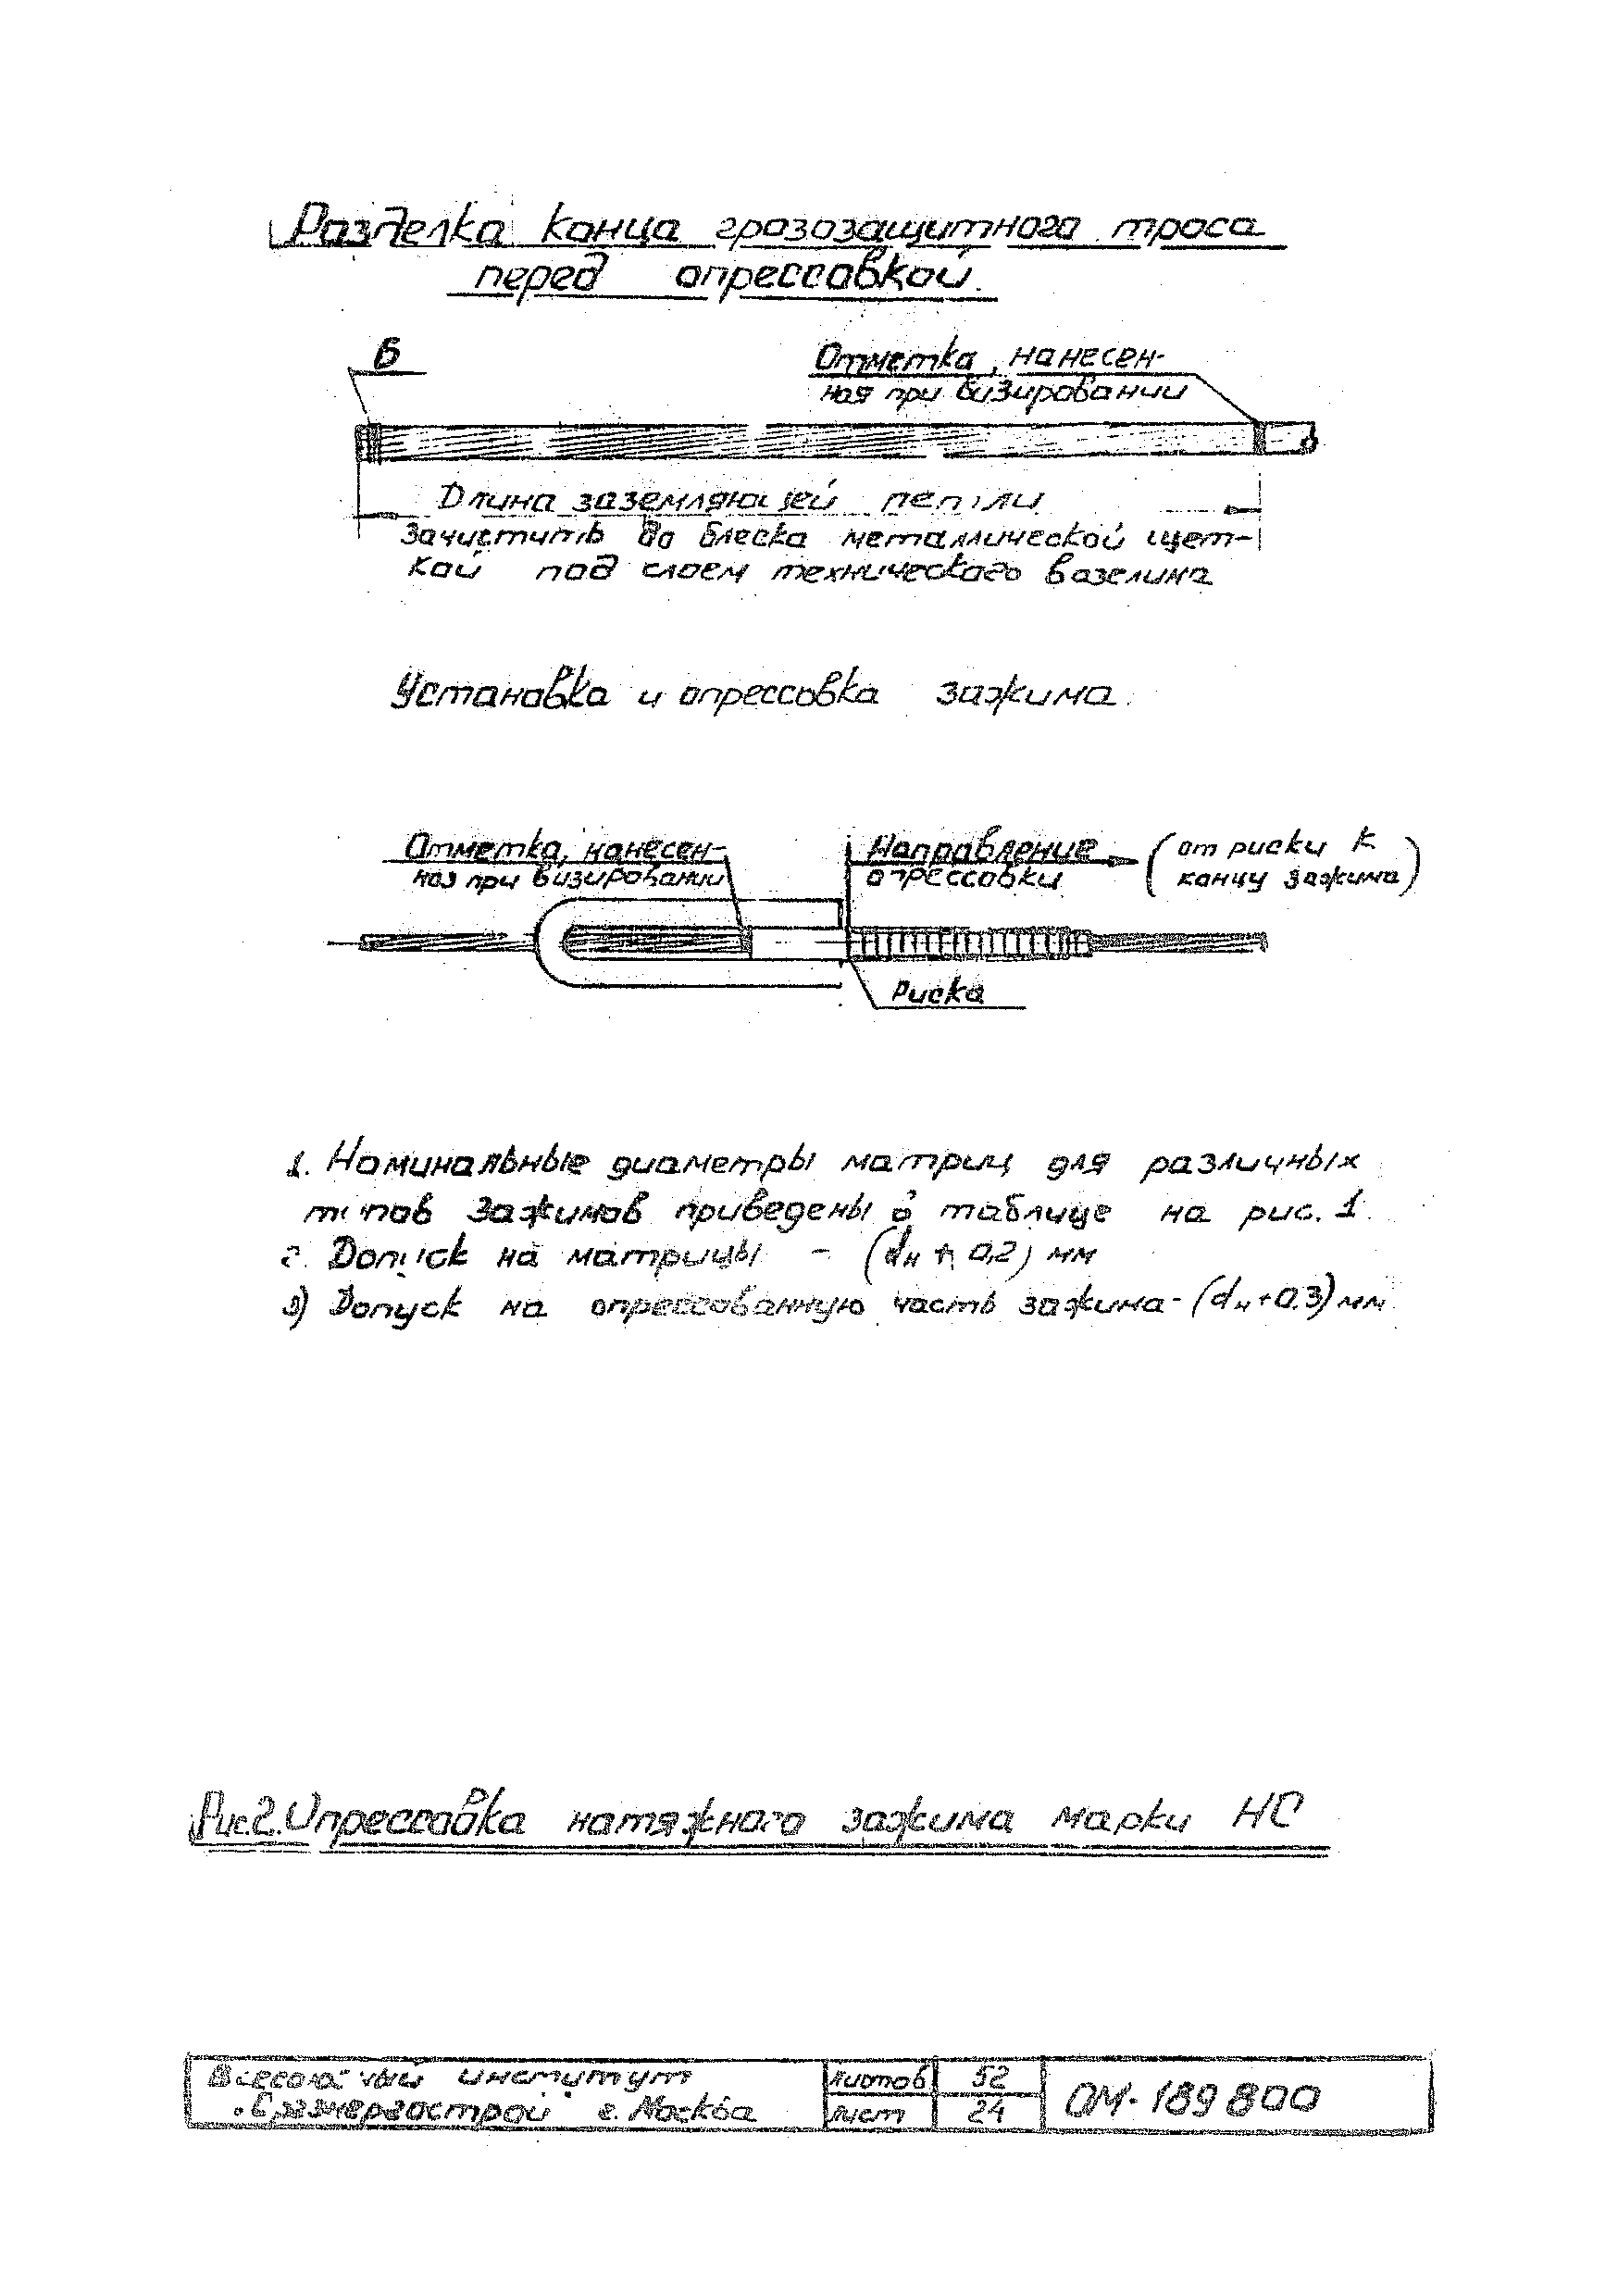 Разделка конца грозозащитного троса
перед опрессовкой.
б
Отметка, нанесен-
ная при визировании
Длина заземляющей петли
Зачистить до блеска металлической щет-
кой под слоем технического вазелина
Установка и опрессовка зажима.
Отметка, нанесен-
ная при визировании
Направление
опрессовки
(от риски к
концу зажима)
Риска
1. Номинальные диаметры матриц для различных
типов зажимов приведены в таблице на рис. 1.
2. Допуск на матрицы - (dн + 0,2) мм
3) Допуск на опрессованную часть зажима - (dн+0.3) мм.
Рис.2. Опрессовка натяжного зажима марки НС
Всесоюзный институт
г. Москва
Листов 52
Лист 24
ОМ-189800